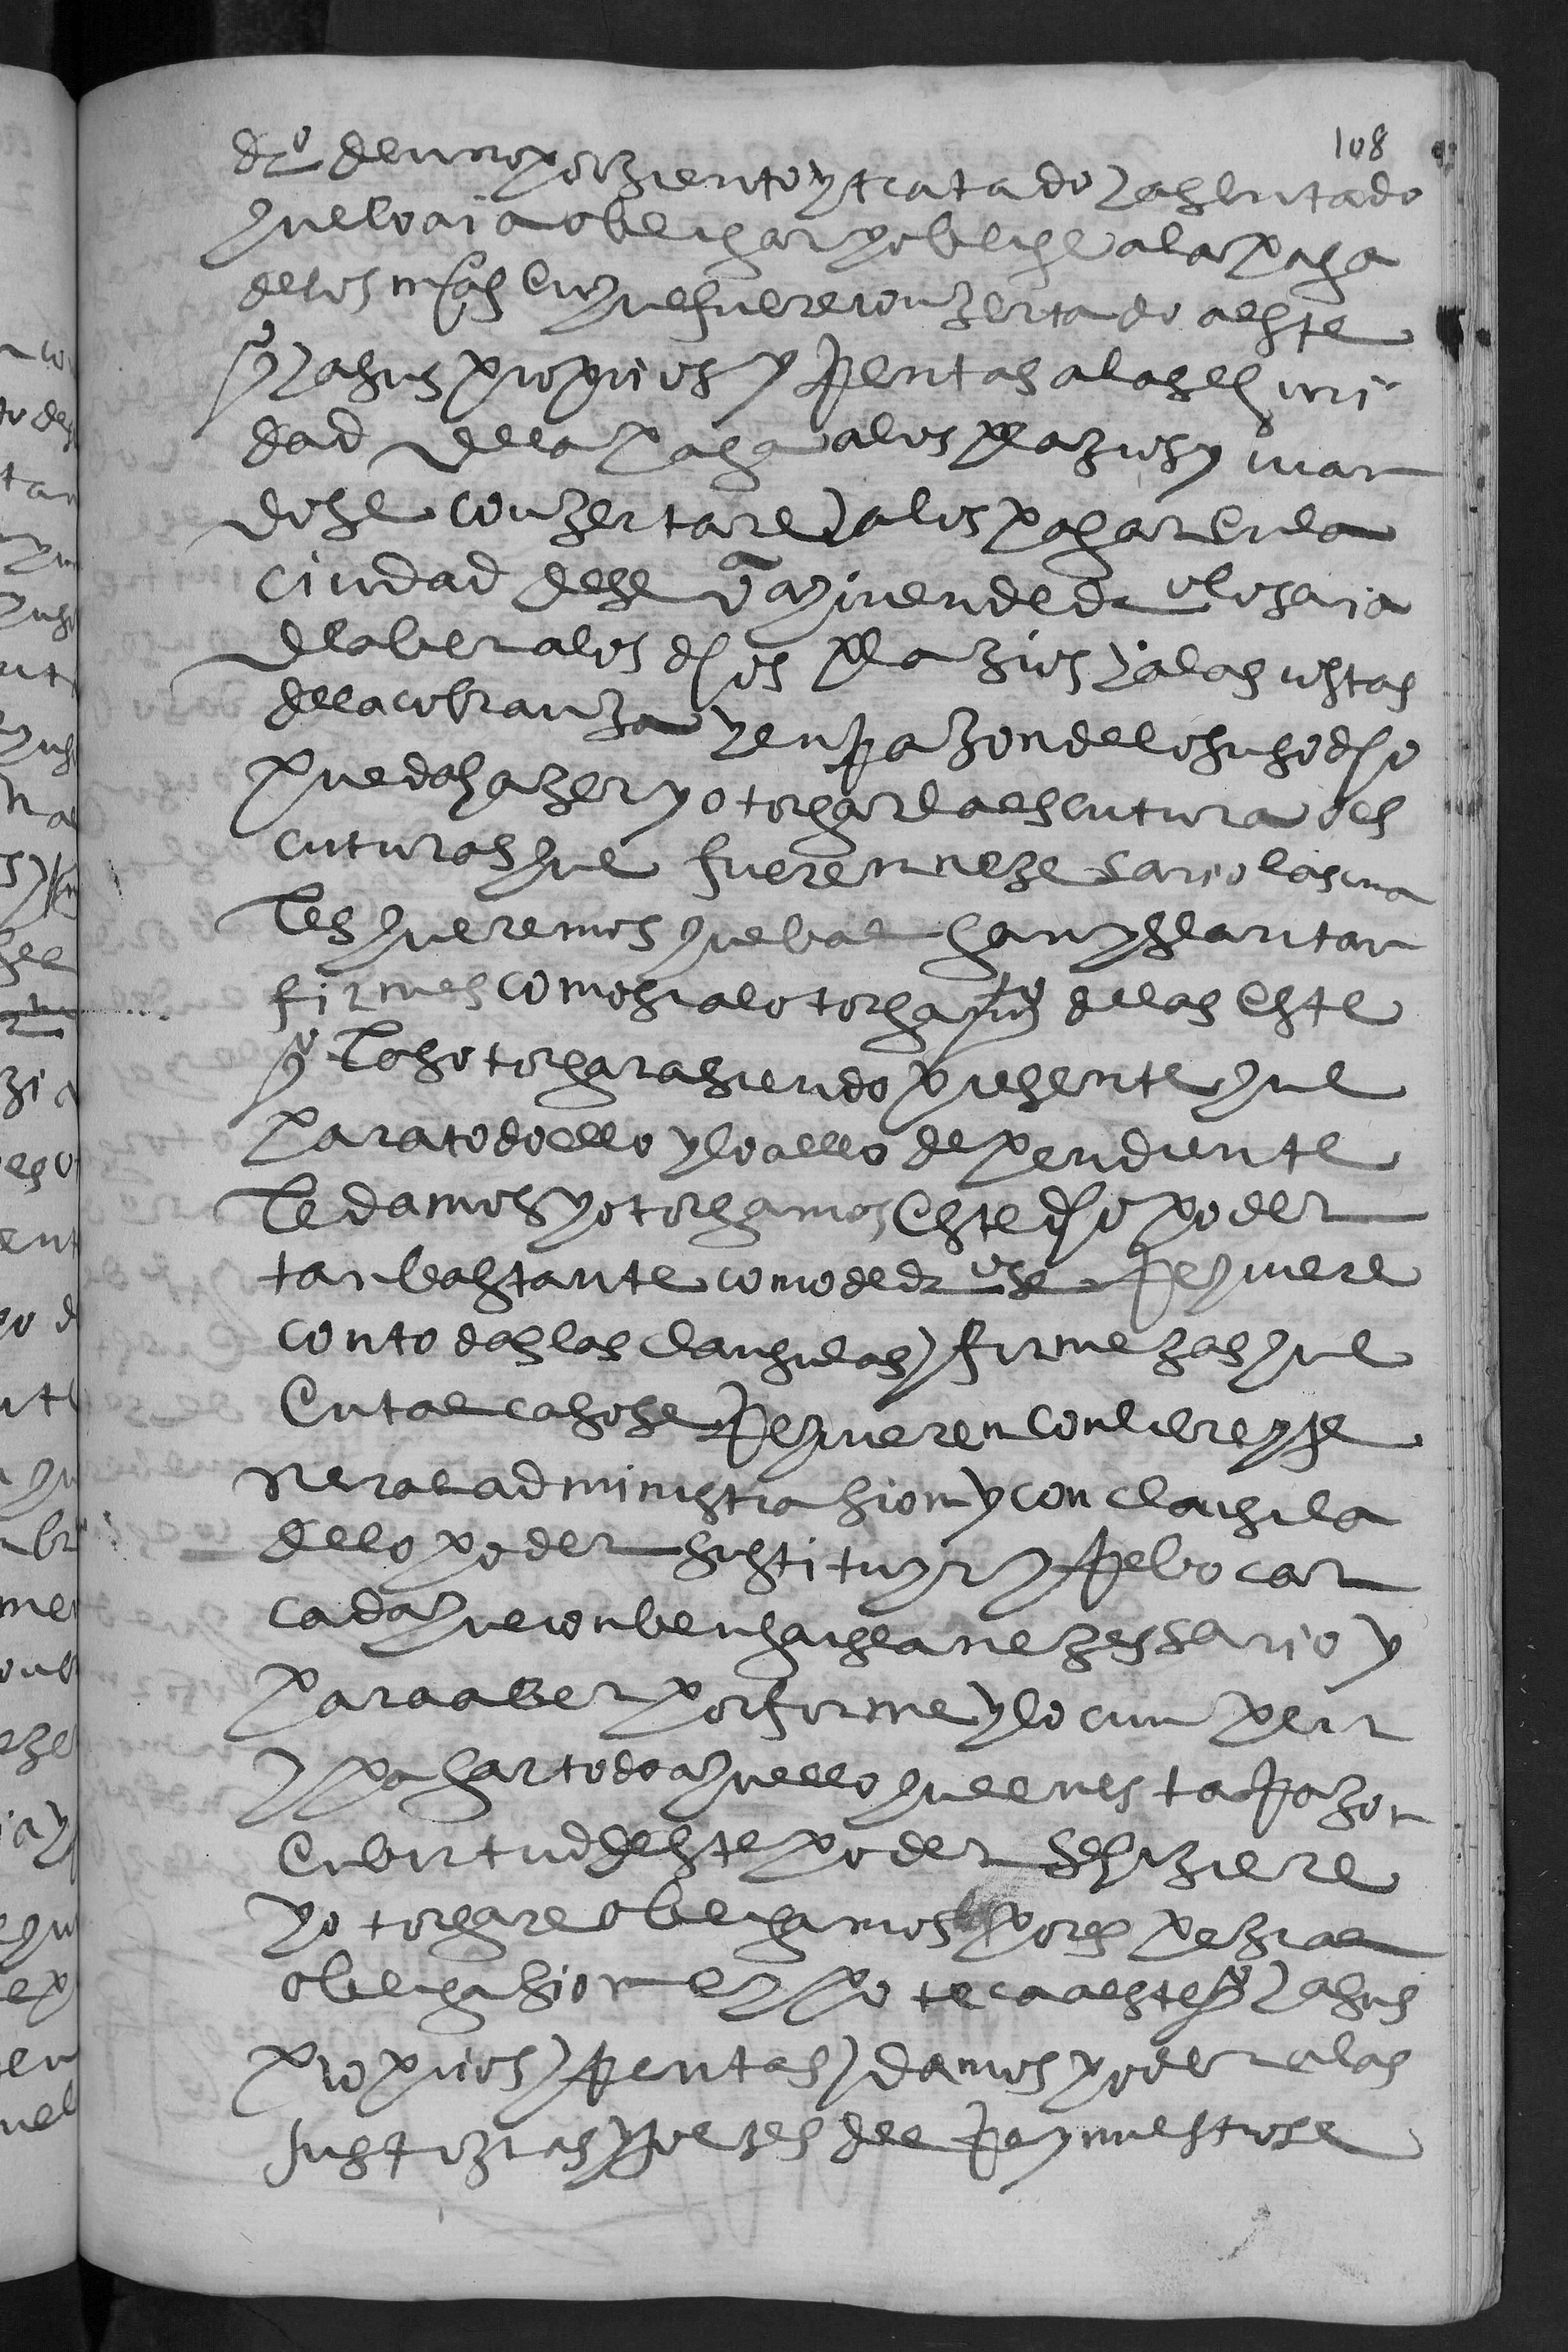 108
dro de uno por ziento y tratado y asentado
que lo aia obligar y obligue a la paga
de los mrs en que fuere conzertado a este
qo y a sus propios y rentas a la siguri
dad de la paga a los plazos y quan
do se conzertare y a los pagar en la
ciudad de se a que en dro los aia
de aber a los dhos plazios y a las costas
de la cobranza y en razon de lo susodho
pueda hazer y otorgar la escritura o es
crituras que fueren nezesario las qua
les queremos que balgan y sean tan
firmes como si al otorgamio dellas este
qo las otorgara siendo presente que
para todo ello y lo a ello dependiente
le damos y otorgamos este dho poder
tan bastante como de dro se requiere
con todas las clausulas y firmezas que
en tal caso se requieren con libre y ge
neral administrasion y con clausula
de lo poder sustituyr y rebocar
cada que conbenga i sea nezessario y
para aber por firme y lo cumplir
y pagar todo aquello que en esta razon
en birtud deste poder se hiziere
y otorgare obligamos por espezial
obligasion e ypoteca a este qo y a sus
propios y rentas y damos poder a las
justizias y juezes del rey nuestro se